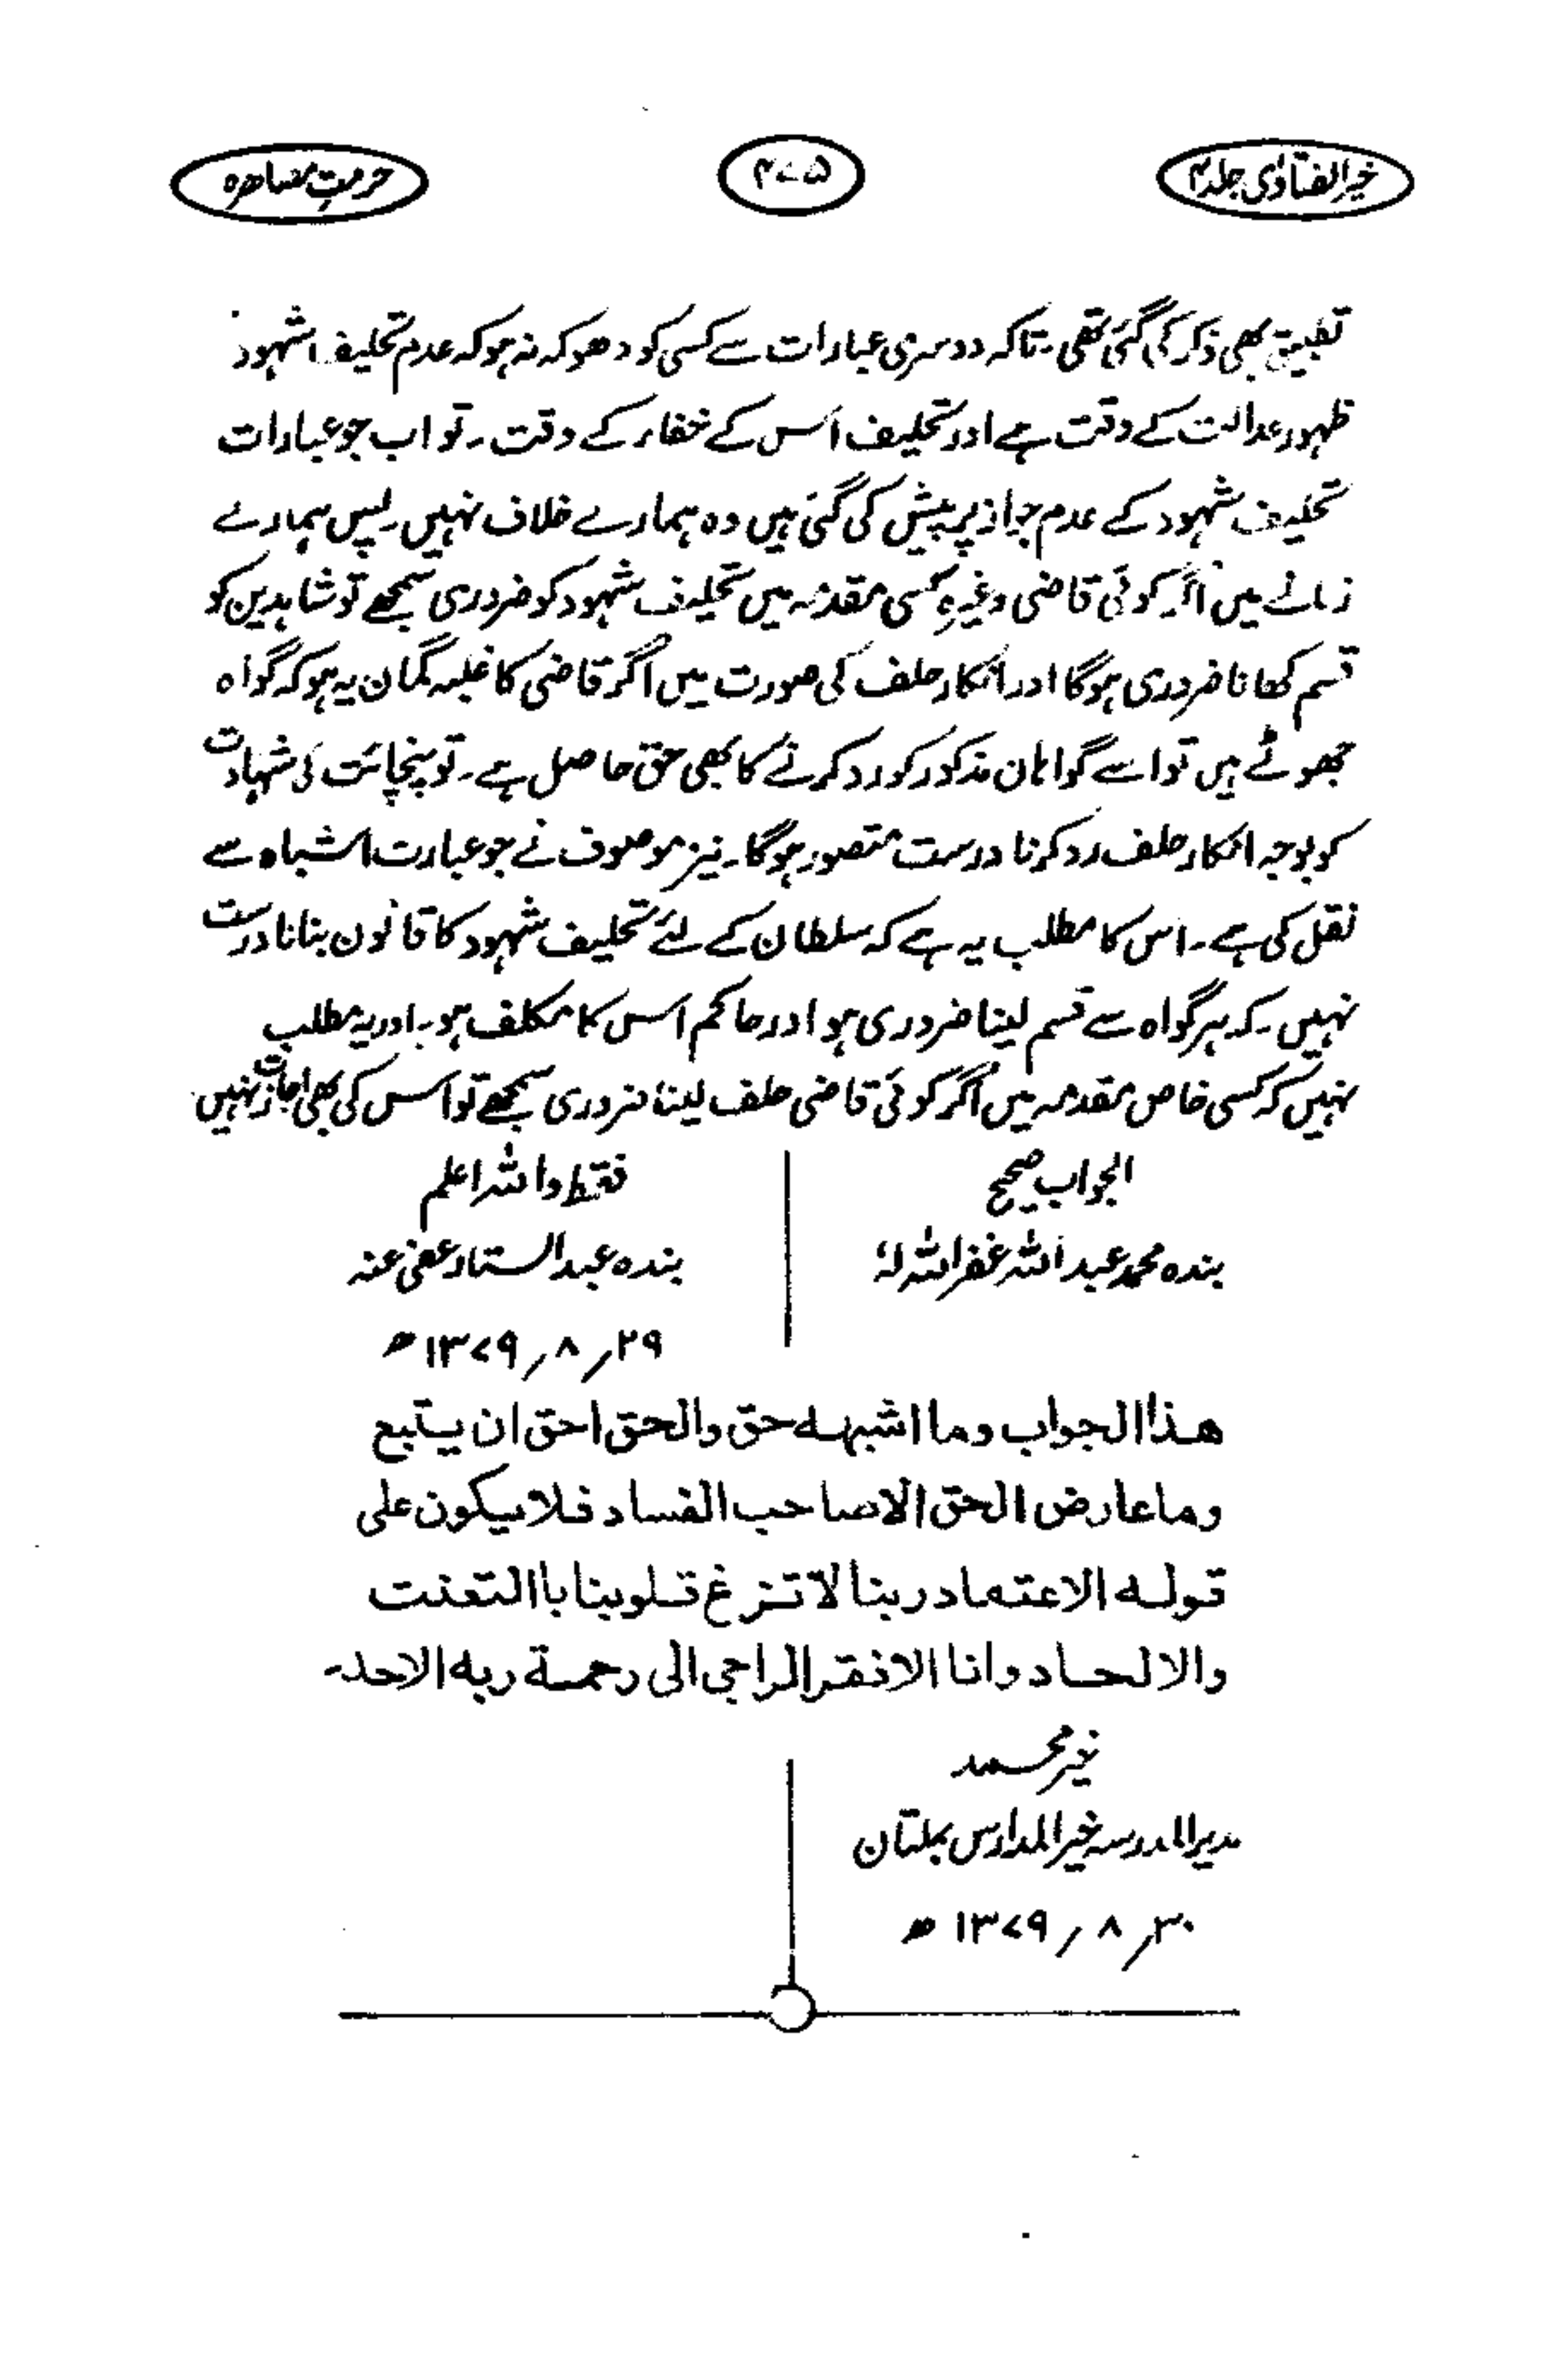 خیر الفتاوٰی جلد ۴
۴۷۵
حرمتِ مصاہرہ
تطبیق بھی ذکر کی گئی تھی۔ تاکہ دوسری عبارات سے کسی کو دھوکہ نہ ہو کہ عدم تحلیف شہود
ظہور عدالت کے وقت ہے اور تحلیف اس کے خفاء کے وقت۔ تو اب جو عبارات
تحلیف شہود کے عدم جواز پر پیش کی گئی ہیں وہ ہمارے خلاف نہیں۔ پس ہمارے
زمانے میں اگر کوئی قاضی وغیرہ کسی مقدمہ میں تحلیف شہود کو ضروری سمجھے تو شاہدین کو
قسم کھانا ضروری ہوگا اور انکار حلف کی صورت میں اگر قاضی کا غلبہ گمان یہ ہو کہ گواہ
جھوٹے ہیں تو اسے گواہان مذکور کو رد کرنے کا بھی حق حاصل ہے۔ تو پنچائت کی شہادت
کو بوجہ انکار حلف رد کرنا درست متصور ہوگا۔ نیز موصوف نے جو عبارت اشباہ سے
نقل کی ہے۔ اس کا مطلب یہ ہے کہ سلطان کے لئے تحلیف شہود کا قانون بنانا درست
نہیں۔ کہ ہر گواہ سے قسم لینا ضروری ہو اور حاکم اس کا مکلف ہو۔ اور یہ مطلب
نہیں کہ کسی خاص مقدمہ میں اگر کوئی قاضی حلف لینا ضروری سمجھے تو اس کی بھی اجازت نہیں
الجواب صحیح
بندہ محمد عبد اللہ غفر اللہ لہٗ
فقط واللہ اعلم
بندہ عبد الستار عفی عنہ
۲۹؍۸؍۱۳۷۹ھ
ھذا الجواب وما اشبھہ حق والحق احق ان یتبع
وما عارض الحق الا صاحب الفساد فلا یکون علی
قولہ الاعتماد ربنا لا تزغ قلوبنا باالتعنت
والالحاد وانا الافقر الراجی الی رحمۃ ربہ الاحد۔
خیر محمد
مدیر المدرسہ خیر المدارس بملتان
۳۰؍۸؍۱۳۷۹ھ